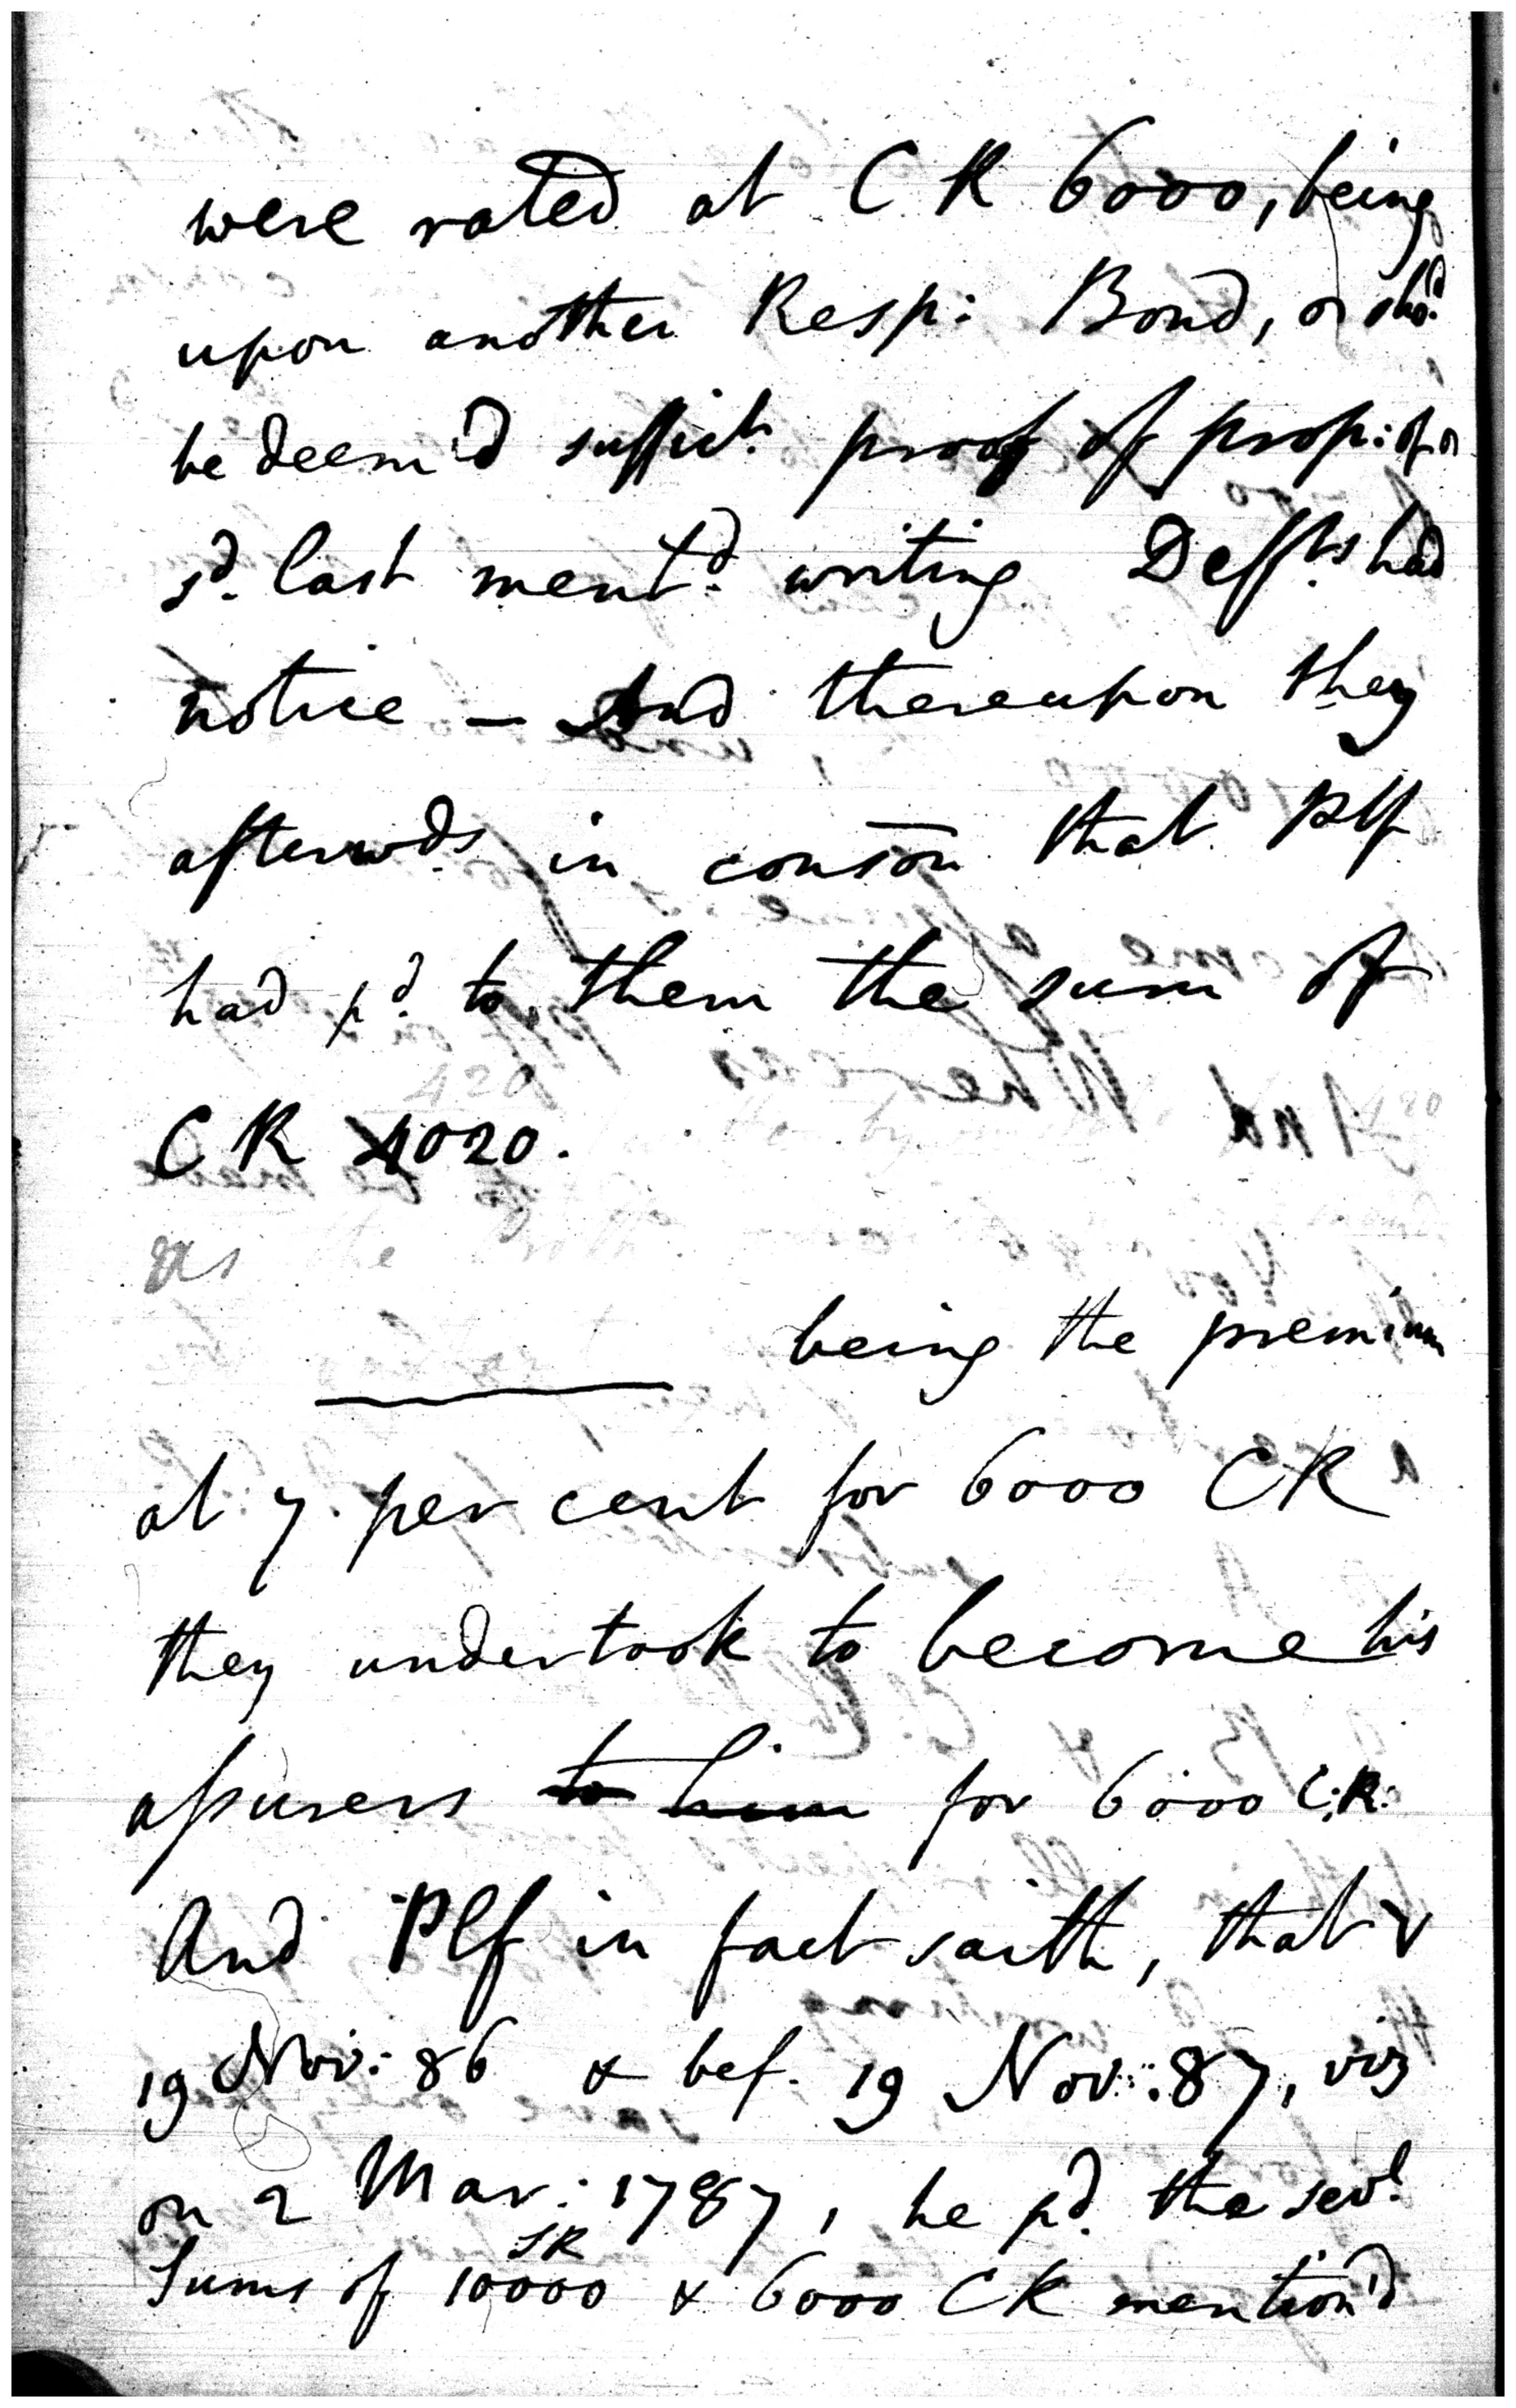 were rated at C R 6000, being
upon another Resp: Bond, & shd.
be deem'd suffict. proof of prop: of
sd. last mentd. writing Deffts. had
notice — And thereupon they
afterwds. in conson that Plf
had pd. to them the sum of
C R 4020.
being the premium
at 7. per cent for 6000 CR
they undertook to become his
assurers to him for 6000 C:R:
And Plf in fact saith, that
19 Nov: 86 & bef. 19 Nov: 87, viz
on 2 Mar: 1787, he pd. the sevl.
SR
Sums of 10000 & 6000 CR mention'd